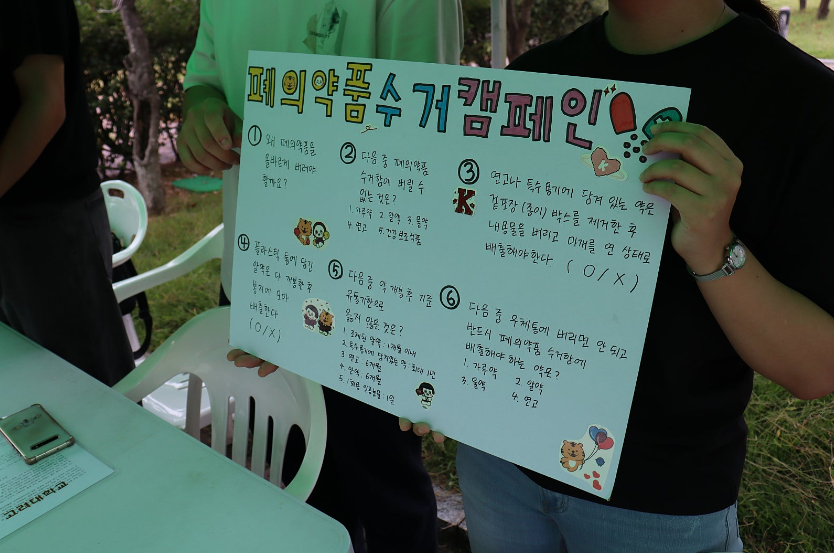 폐의약품수거캠페인
① 왜 폐의약품을
올바르게 버려야
할까요?
② 다음 중 폐의약품
수거함에 버릴 수
없는 것은?
1. 가루약 2. 알약 3. 물약
4. 연고 5. 건강보조식품
③ 연고나 특수용기에 담겨 있는 약은
겉포장 (종이) 박스를 제거한 후
내용물을 버리고 마개를 연 상태로
배출해야 한다 ( O / X )
K
④ 플라스틱 통에 담긴
알약은 다 개봉한 후
봉지에 모아
배출한다
( O / X )
⑤ 다음 중 약 개봉 후 지준
유통기한으로
옳지 않은 것은?
3. 연고 6개월
4. 안약 6개월
⑥ 다음 중 우체통에 버리면 안 되고
반드시 폐의약품 수거함에
배출해야 하는 약은?
1. 가루약 2. 알약
3. 물약 4. 연고